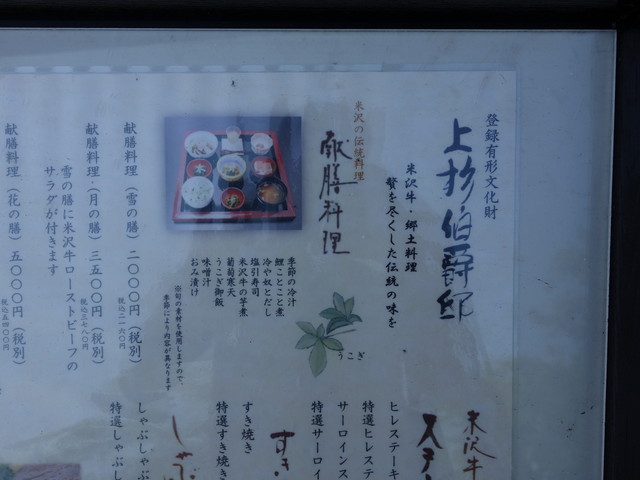 登録有形文化財
上杉伯爵邸
米沢牛・郷土料理
贅を尽くした伝統の味を
米沢の伝統料理
献膳料理
季節の冷汁
鯉ことこと煮
冷や奴とだし
塩引寿司
米沢牛の芋煮
葡萄寒天
うこぎ御飯
味噌汁
おみ漬け
※旬の素材を使用しますので、
季節により内容が異なります
うこぎ
献膳料理(雪の膳)二〇〇〇円(税別)
税込二一六〇円
献膳料理(月の膳)三五〇〇円(税別)
税込三七八〇円
雪の膳に米沢牛ローストビーフの
サラダが付きます
献膳料理(花の膳)五〇〇〇円(税別)
税込五四〇〇円
米沢牛
ステ
ヒレステーキ
特選ヒレステ
サーロインス
特選サーロイ
すき
すき焼き
特選すき焼き
しゃぶ
しゃぶしゃぶ
特選しゃぶし